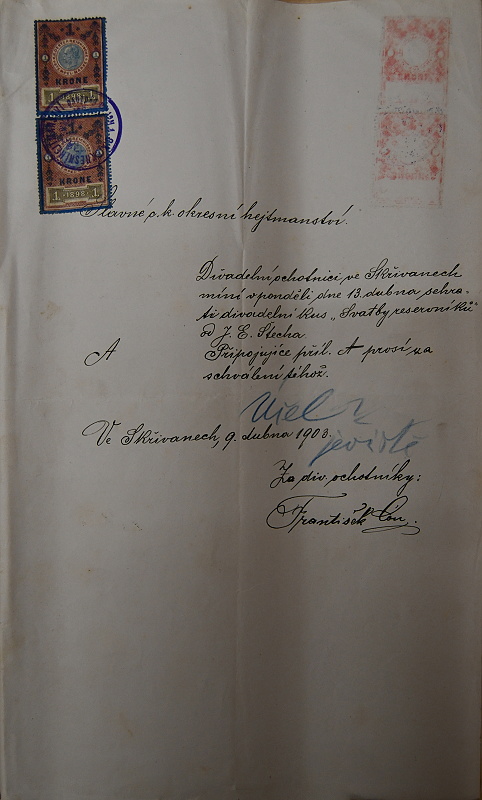 1
KRONE
1 1898 1
1
KRONE
1 1898 1
Slavné c. k. okresní hejtmanství.
Divadelní ochotníci ve Skřivanech
míní v pondělí dne 13. dubna sehrá-
ti divadelní kus „Svatby reservníků"
od J. E. Stecha.
A
Připojujíce příl. A prosí za
schválení téhož.
Účel
jeviště
Ve Skřivanech, 9. dubna 1903.
Za div. ochotníky:
František